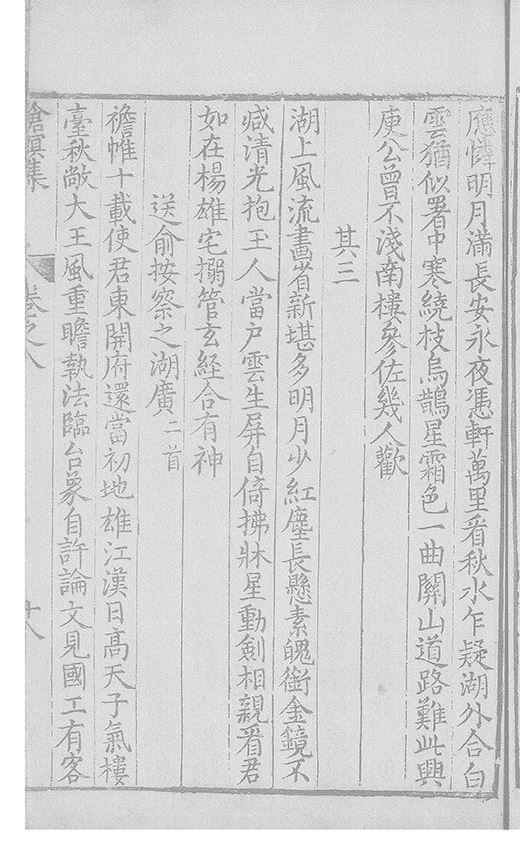 應憐明月滿長安永夜憑軒萬里看秋水乍疑湖外合白
雲猶似署中寒繞枝烏鵲星霜色一曲關山道路難此興
庾公曾不淺南樓參佐幾人歡
其三
湖上風流畫省新堪多明月少紅塵長懸素魄銜金鏡不
減清光抱玉人當戶雲生屏自倚拂牀星動劍相親看君
如在楊雄宅搦管玄経合有神
送俞按察之湖廣二首
襜帷十載使君東開府還當初地雄江漢日高天子氣樓
臺秋敞大王風重瞻執法臨台象自許論文見國工有客
滄溟集 卷之八 十八